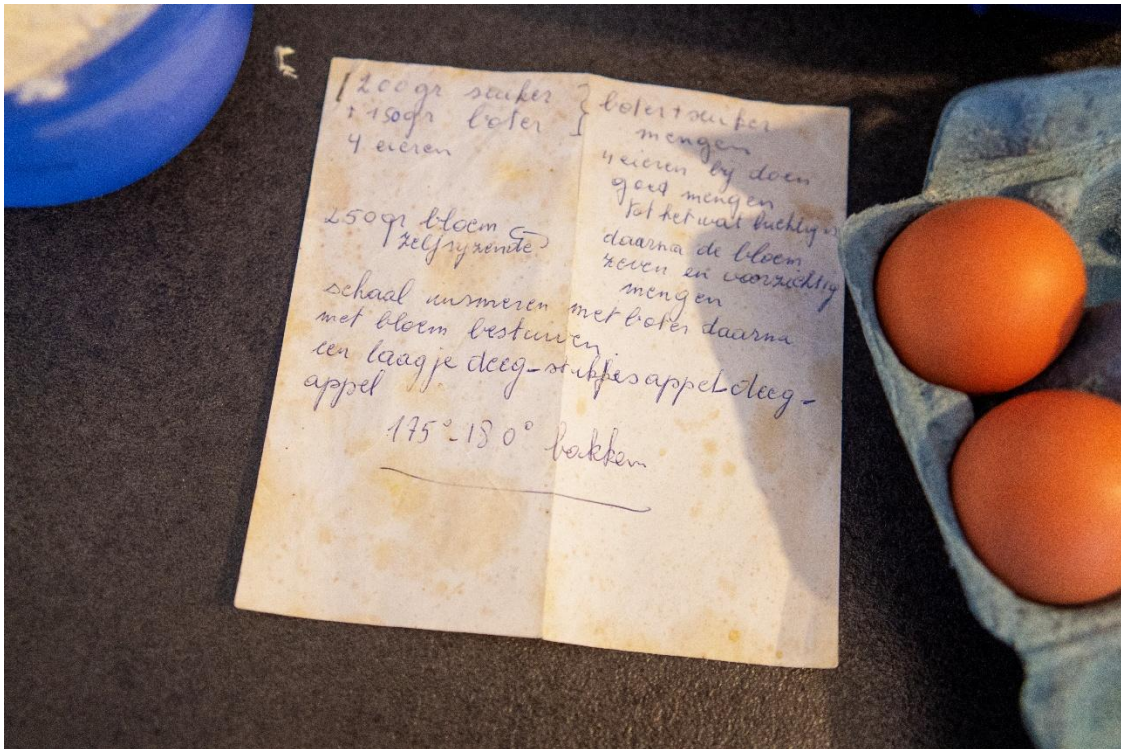 200gr suiker
+ 150gr boter
4 eieren
250gr bloem
zelfrijzende
boter + suiker
mengen
4 eieren bij doen
goed mengen
tot het wat luchtig is
daarna de bloem
zeven en voorzichtig
mengen
schaal insmeren met boter daarna
met bloem bestuiven
een laagje deeg - stukjes appel - deeg -
appel
175° - 180° bakken